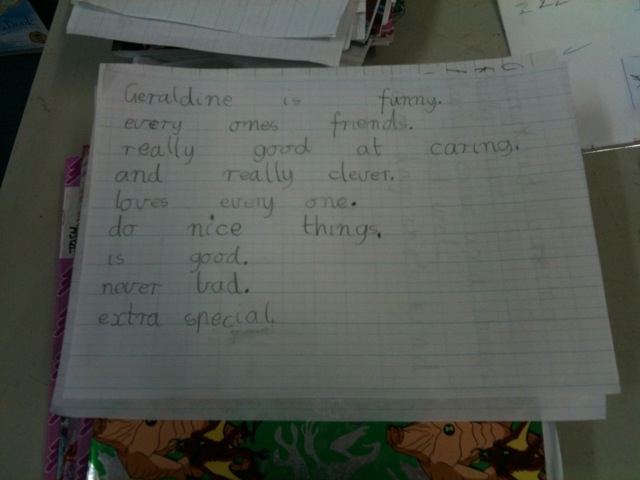 Geraldine is funny.
every ones friends.
really good at caring.
and really clever.
loves every one.
do nice things.
is good.
never bad.
extra special.